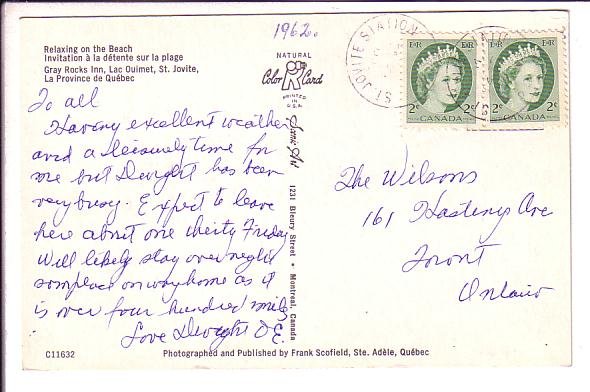 1962.
Relaxing on the Beach
Invitation à la détente sur la plage
Gray Rocks Inn, Lac Ouimet, St. Jovite,
La Province de Québec
NATURAL
Color Card
PRINTED
IN
U.S.A.
ST. JOVITE STATION
2¢ CANADA 2¢
2¢ CANADA 2¢
To all
Having excellent weather
and a leisurely time for
me but Dwight has been
very busy. Expect to leave
here about one thirty Friday
Will likely stay over night
someplace on way home as it
is over four hundred miles
Love Dwight & E.
1231 Bleury Street • Montreal, Canada
The Wilsons
161 Hastings Ave
Toront
Ontario
C11632
Photographed and Published by Frank Scofield, Ste. Adèle, Québec